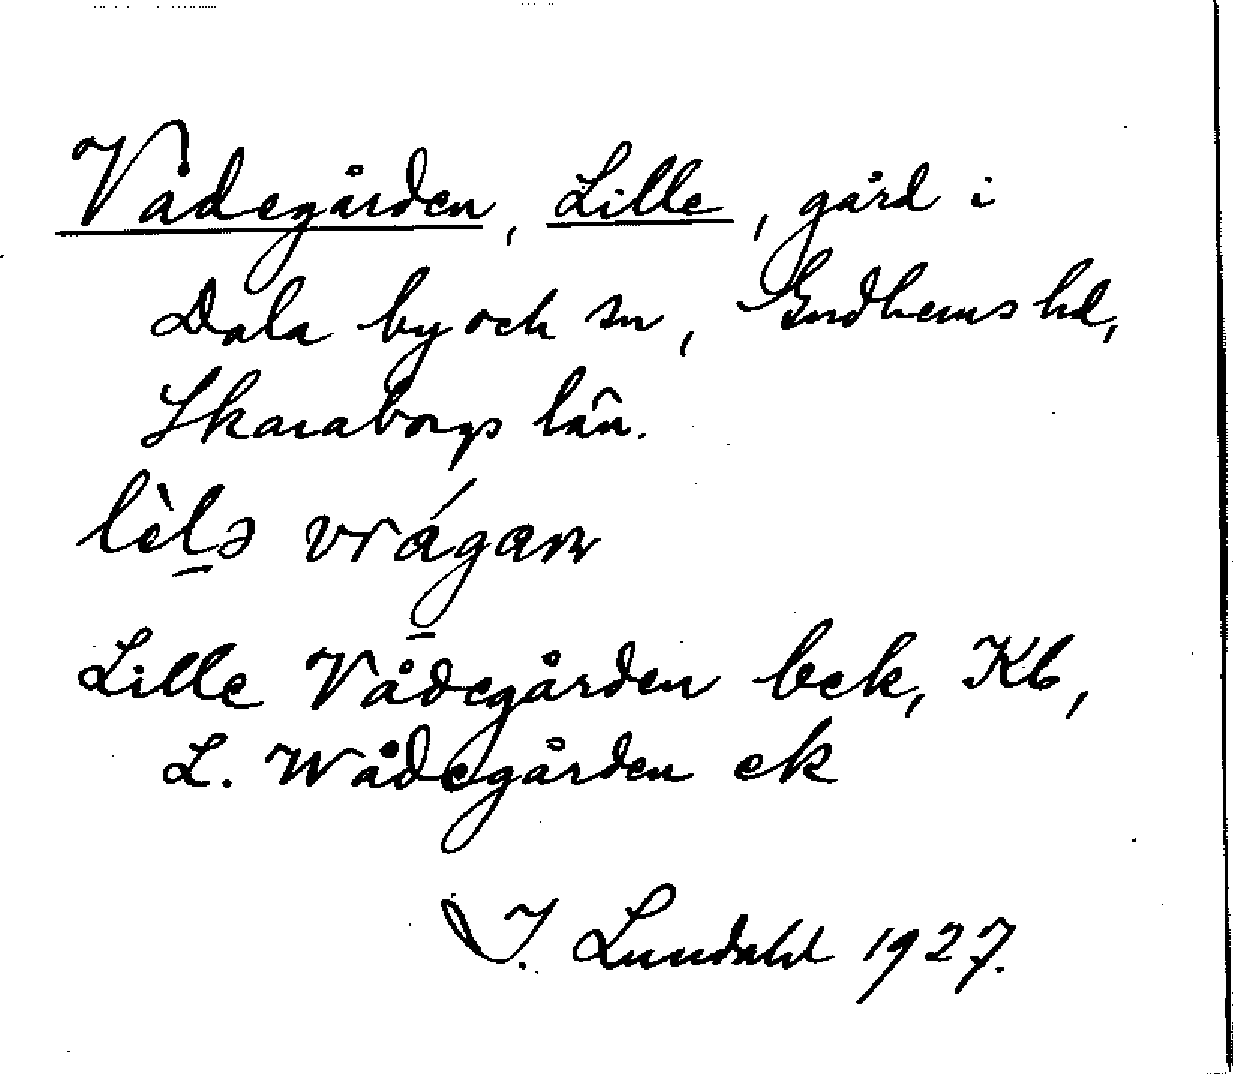 Vådegården, Lille, gård i
Dala by och sn, Gudhems hd,
Skaraborgs län.
lèlə vrágaɳ
Lille Vådegården bek, Kb,
L. Wådegården ek
I. Lundahl 1927.